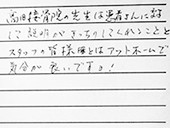 高田接骨院の先生は患者さんに対
して説明がきっちりしてくれることと
スタッフの皆様はアットホームで
気分が良いです！